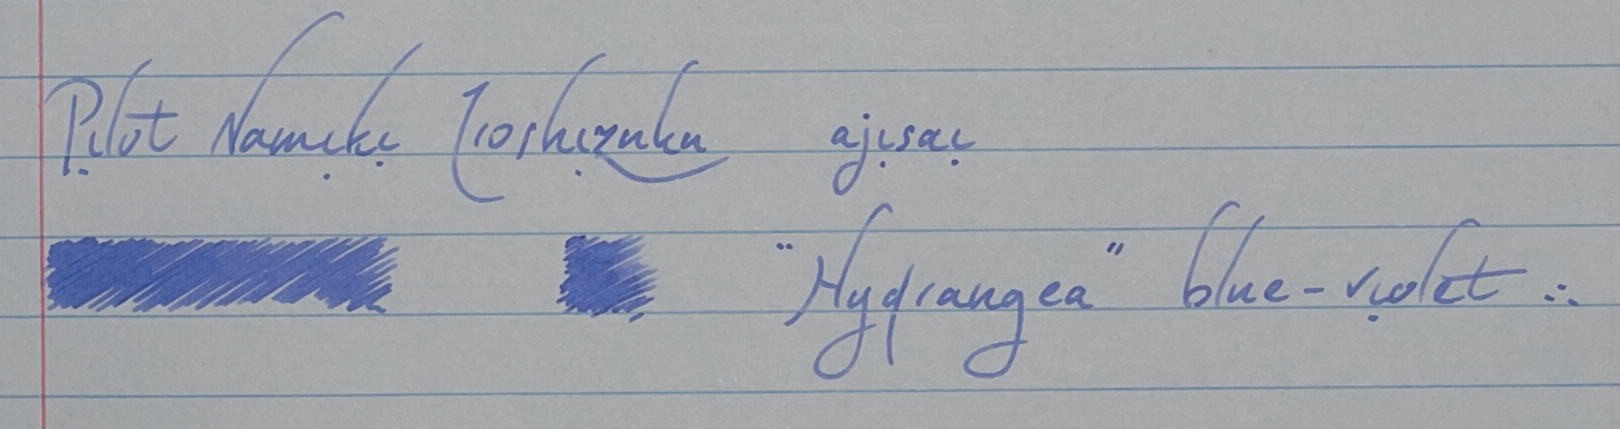 Pilot Namiki Iroshizuku ajisai
"Hydrangea" blue-violet ∴